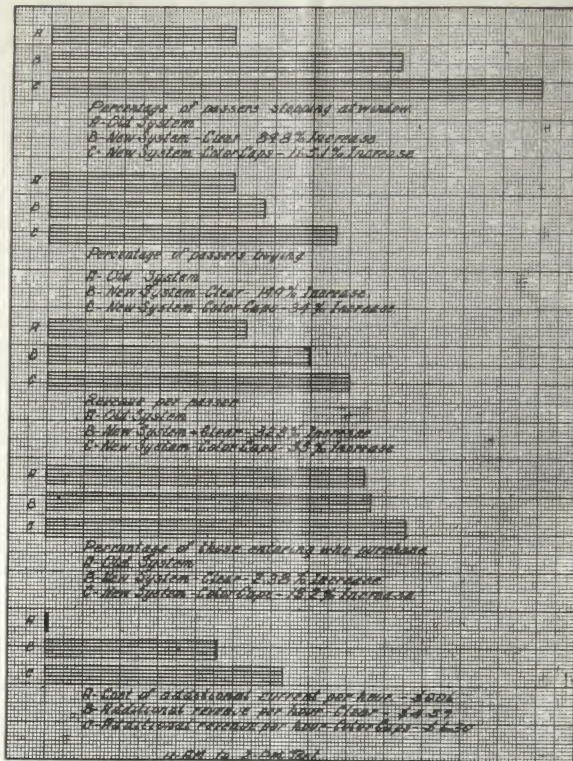 A
B
C
Percentage of passers stopping at window
A-Old System
B-New System-Clear - 84.8% Increase
C-New System-Color Caps - % Increase
A
B
C
Percentage of passers buying
A-Old System
B-New System-Clear - 14.9% Increase
C-New System-Color Caps - 54% Increase
A
B
C
Revenue per passer
A-Old System
B-New System-Clear - 32.3% Increase
C-New System-Color Caps - 53% Increase
A
B
C
Percentage of those entering who purchase
A-Old System
B-New System-Clear - 2.38% Increase
C-New System-Color Caps - 13.2% Increase
A
B
C
A-Cost of additional current per hour -
B-Additional revenue per hour-Clear - $4.57
C-Additional revenue per hour-Color Caps - $6.30